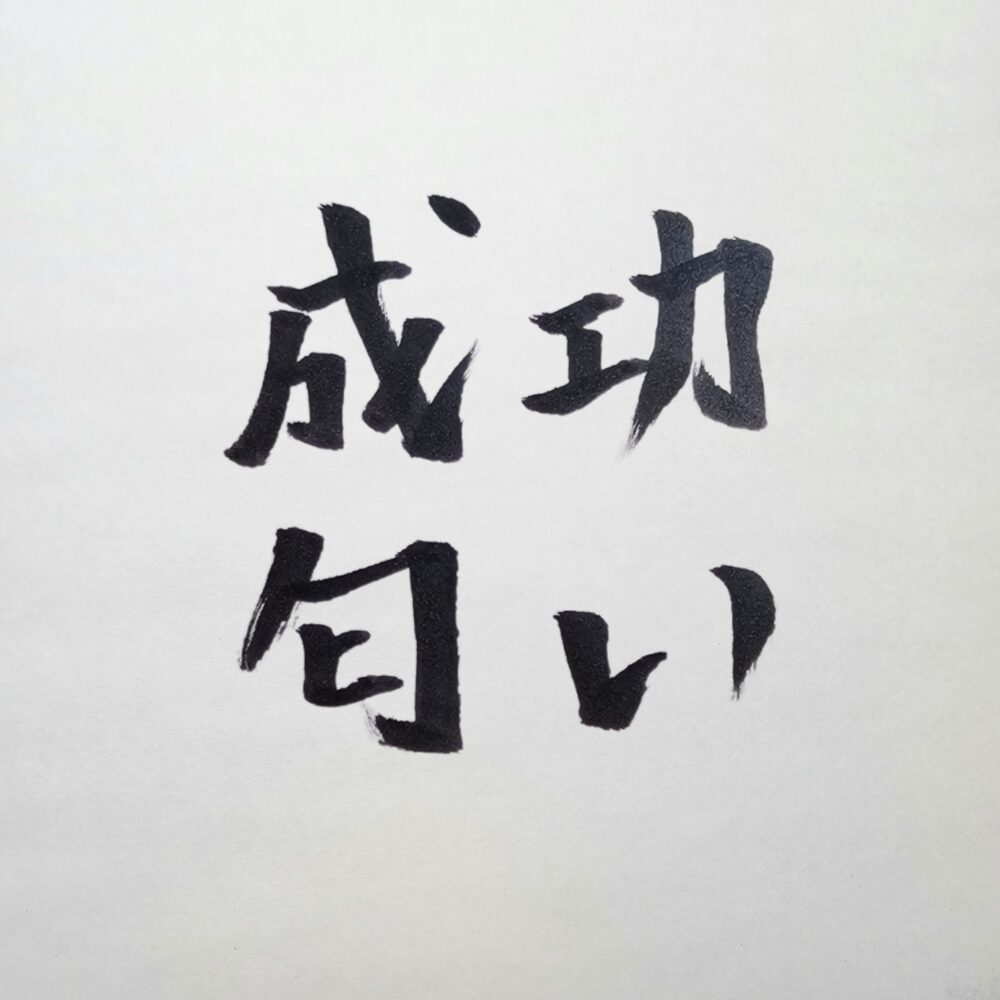 成功
匂い